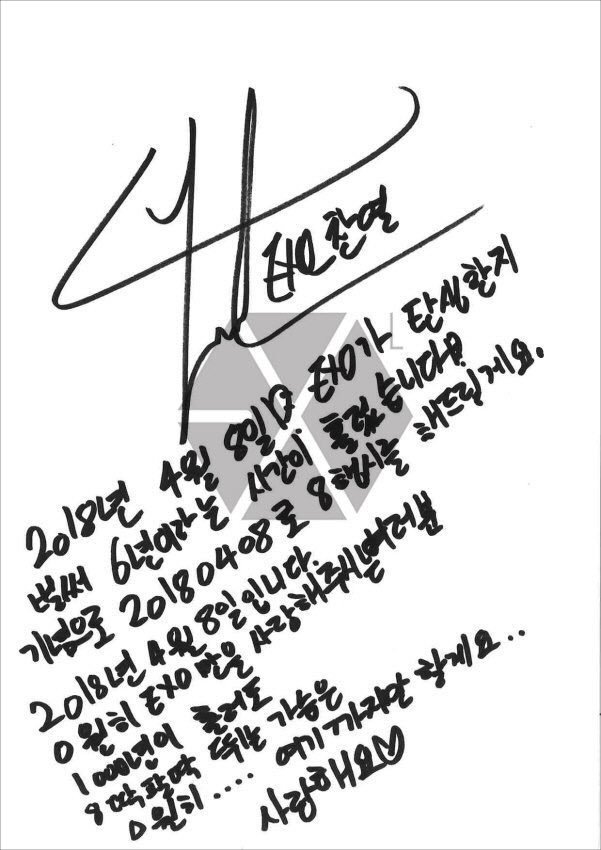 EXO 찬열
L
2018년 4월 8일 EXO가 탄생한지
벌써 6년이라는 시간이 흘렀습니다!
기념으로 20180408로 8행시를 해드릴게요.
2018년 4월 8일입니다.
0원히 EXO만을 사랑해주시는 여러분
1000년이 흘러도
8딱팔딱 뛰는 가슴은
0원히.... 여기까지만 할게요..
사랑해요♡